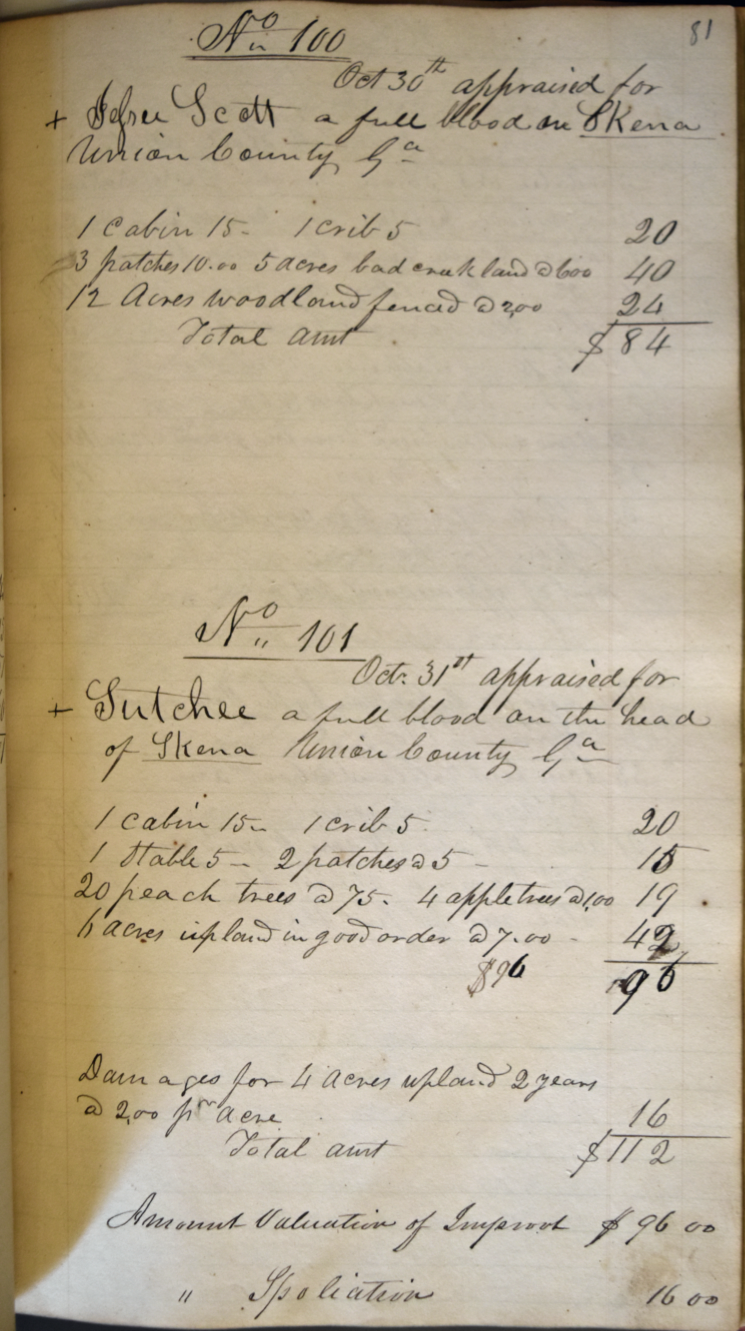 81
No 100
Oct 30th appraised for
+ Scott a full blood on Skena
Union County Ga
1 Cabin 15- 1 crib 5 20
3 patches 10.00 5 acres bad creek land @ 6 00 40
12 Acres woodland fenced @ 2,00 24
Total amt $84
No 101
Oct. 31st appraised for
+ Sutchee a full blood on the head
of Skena Union County Ga
1 cabin 15- 1 crib 5. 20
1 Stable 5- 2 patches @ 5- 15
20 peach trees @ 75. 4 apple trees @ 1,00 19
6 acres upland in good order @ 7.00 - 42
$96 96
Damages for 4 acres upland 2 years
@ 2,00 pr acre 16
Total amt $112
Amount Valuation of Improvt $96 00
" Spoliation 16 00